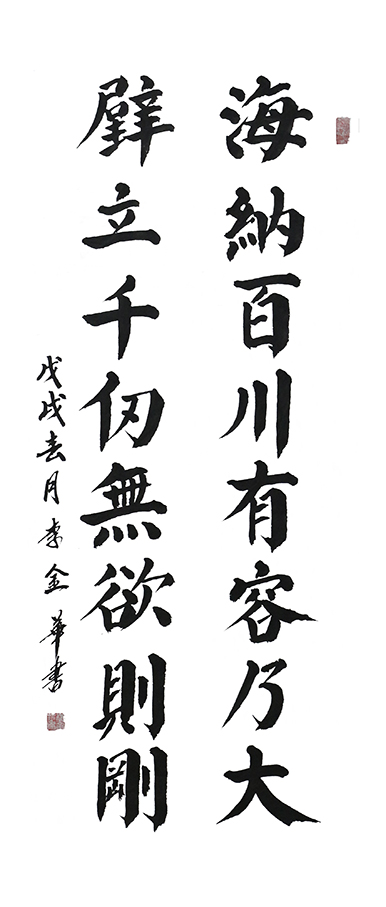 海納百川有容乃大
壁立千仞無欲則剛
戊戌春月李金華書